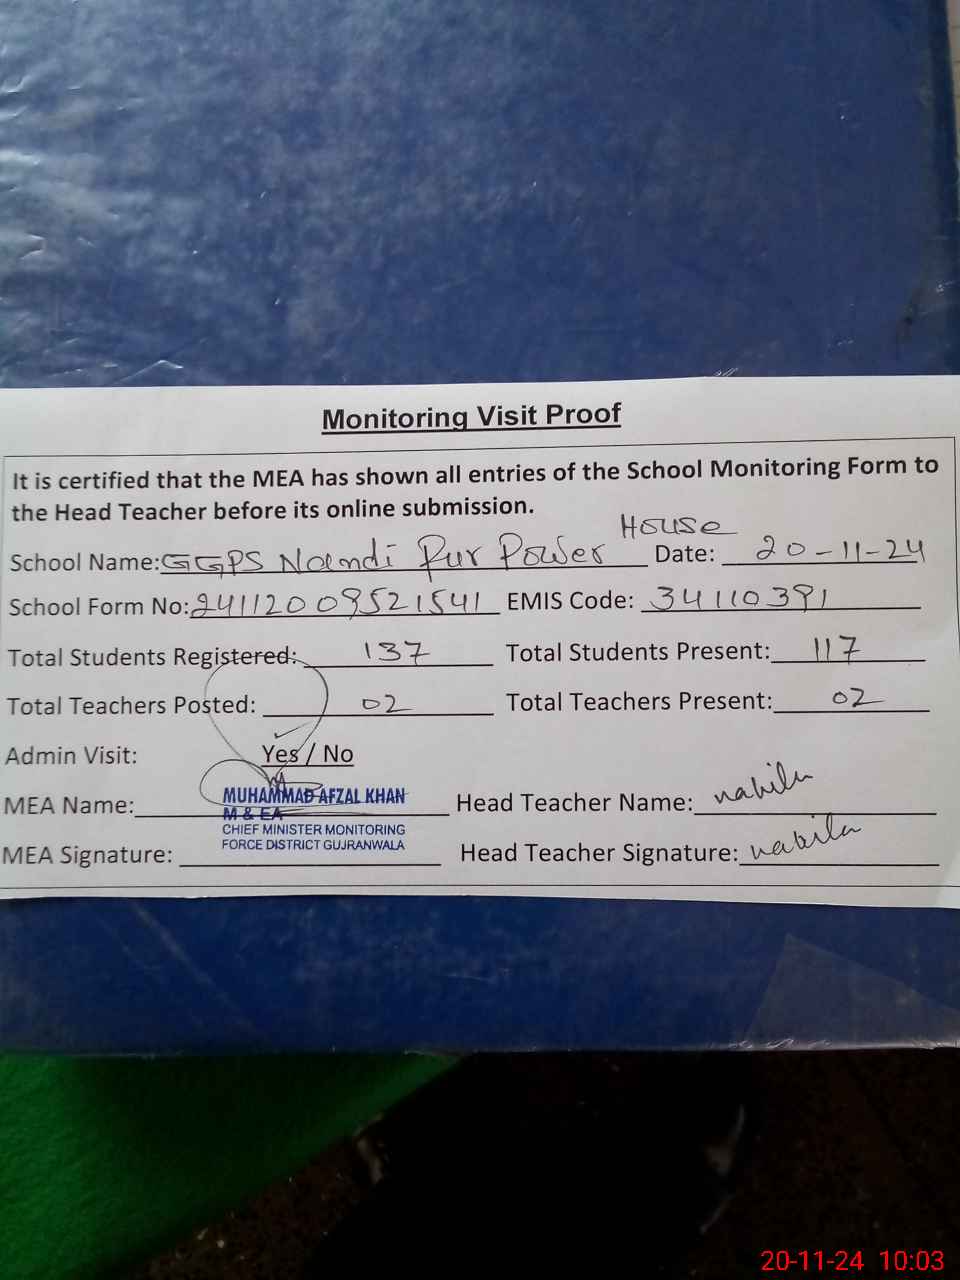 Monitoring Visit Proof
It is certified that the MEA has shown all entries of the School Monitoring Form to
the Head Teacher before its online submission.
School Name: GGPS Nandi Pur Power House Date: 20-11-24
School Form No: 24112009521541 EMIS Code: 34110391
Total Students Registered: 137 Total Students Present: 117
Total Teachers Posted: 02 Total Teachers Present: 02
Admin Visit: Yes / No
MEA Name: MUHAMMAD AFZAL KHAN Head Teacher Name: nabila
M & EA
CHIEF MINISTER MONITORING
FORCE DISTRICT GUJRANWALA
MEA Signature: Head Teacher Signature: nabila
20-11-24 10:03